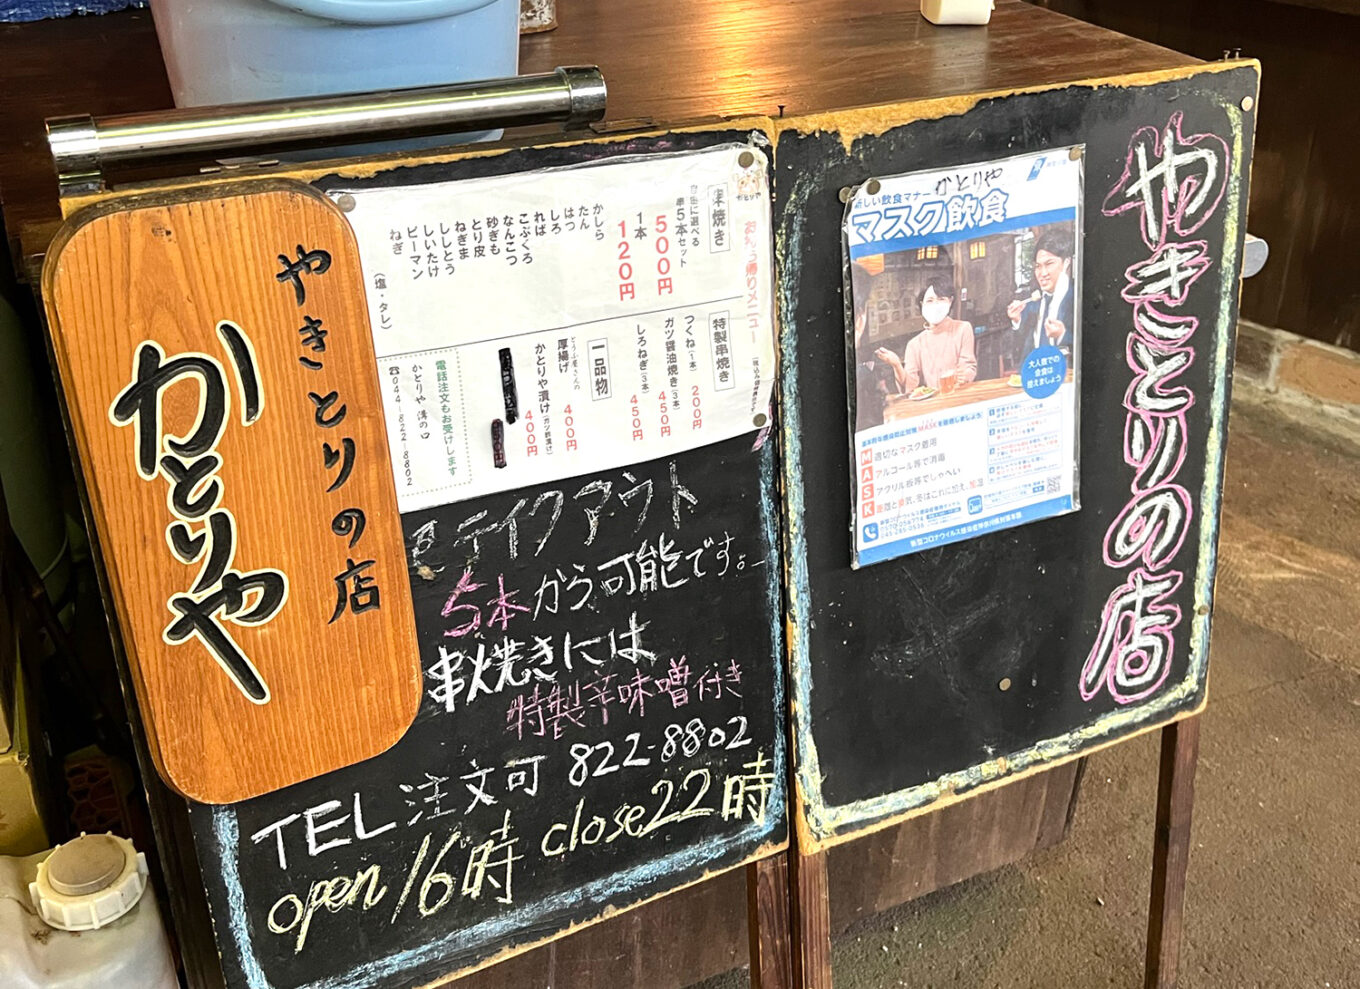 やきとりの店
かとりや
お持ち帰りメニュー
串焼き
自由に選べる
串5本セット
500円
1本
120円
かしら
たん
はつ
しろ
ればー
こぶくろ
なんこつ
砂ぎも
とり皮
ねぎま
ししとう
しいたけ
ピーマン
ねぎ
(塩・タレ)
特製串焼き
つくね(1本) 200円
ガツ醤油焼き(3本) 450円
しろねぎ(3本) 450円
一品物
厚揚げ 400円
かとりや漬け(ガツ酢漬け) 400円
電話注文もお受けします
かとりや 溝の口
☎044-822-8802
テイクアウト
5本から可能です。
串焼きには
特製辛味噌付き
TEL注文可 822-8802
open 16時 close 22時
かとりや
新しい飲食マナー
マスク飲食
大人数での
会食は
控えましょう
基本的な感染防止対策MASKを徹底しましょう
M 適切なマスク着用
A アルコール等で消毒
S アクリル板等でしゃへい
K 距離と換気、冬はこれに加え、加湿
045-285-0536
新型コロナウイルス感染症神奈川県対策本部
やきとりの店